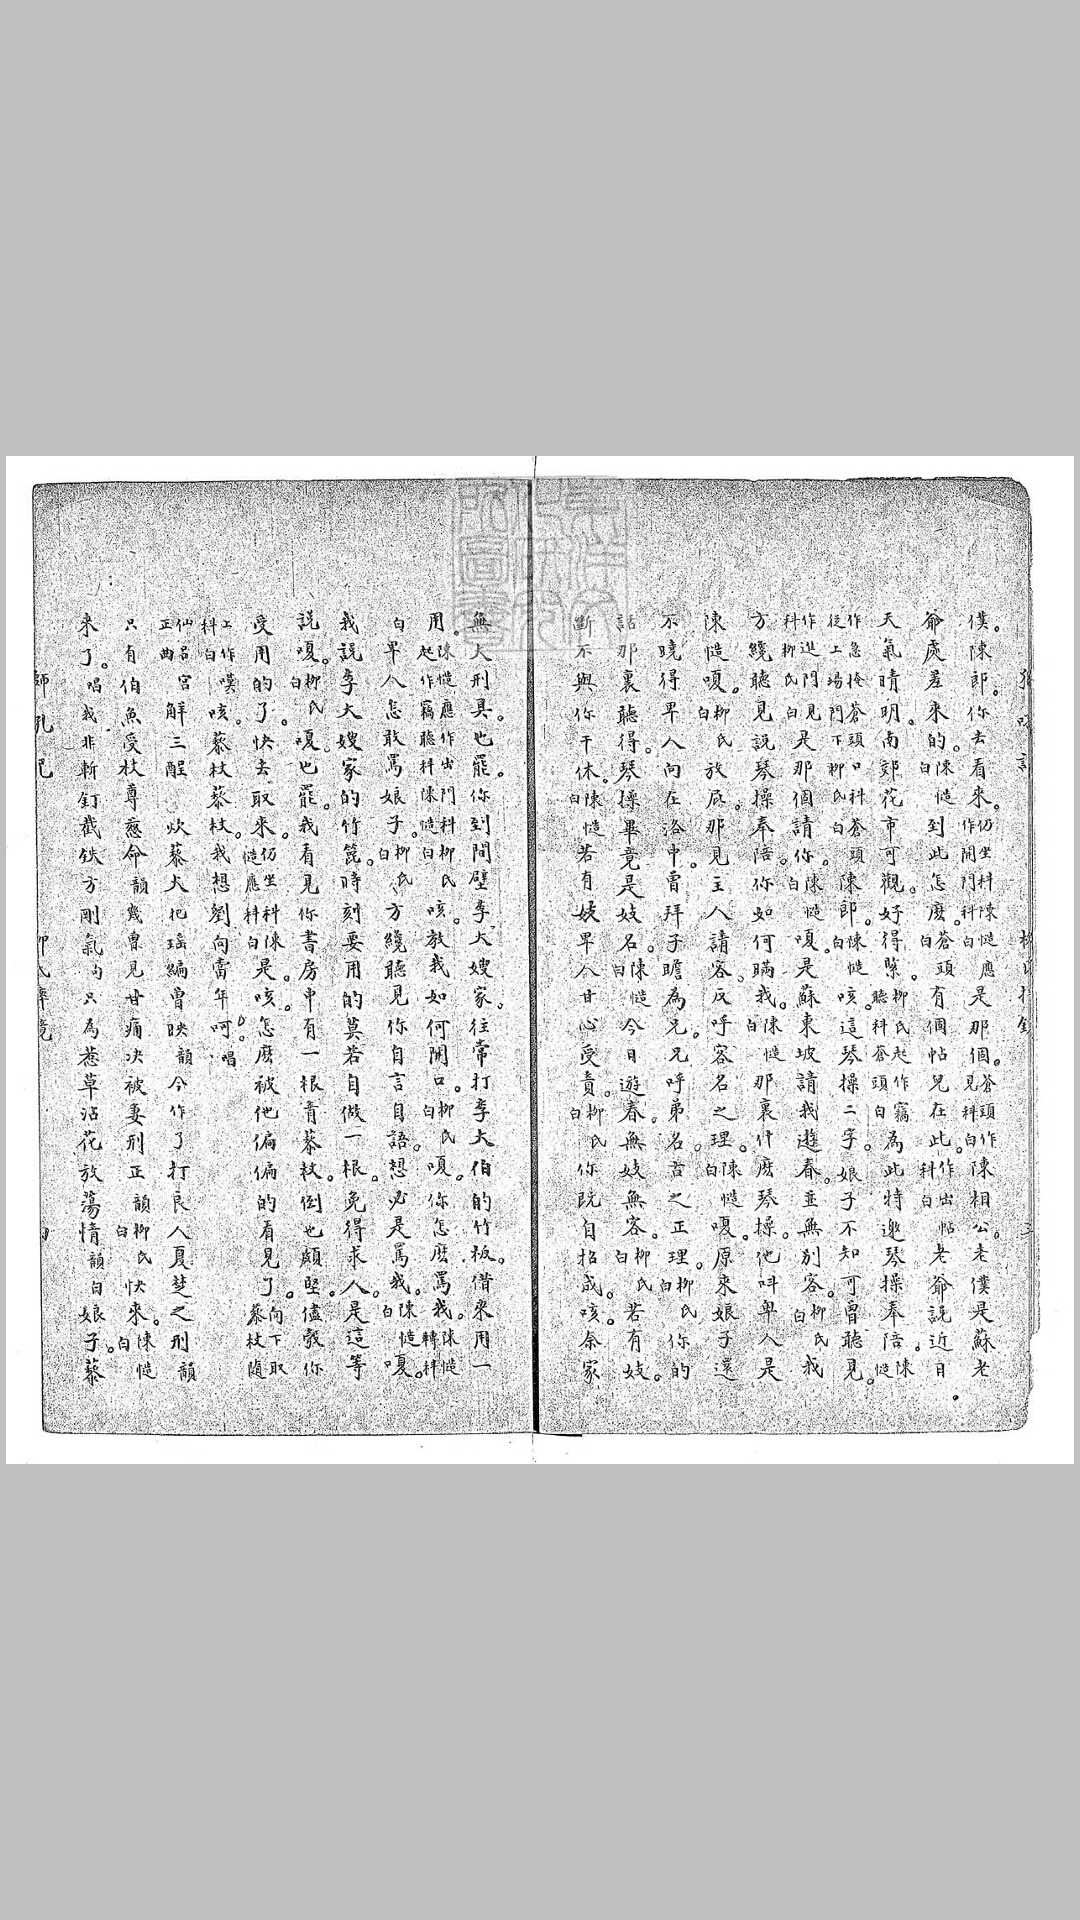 僕。陳郎。你去看來。仍坐科陳慥應作開門科白是那個。蒼頭作見科白陳相公老僕是蘇老
爺處差來的。陳慥白到此怎麼。蒼頭白有個帖兒在此。作出帖科白老爺說近日
天氣晴明。南郊花市可觀。好得緊。柳氏起作竊聽科蒼頭白為此特邀琴操奉陪。陳慥
作急掩蒼頭口科蒼頭從上場門下柳氏白陳郎。陳慥白咳。這琴操二字。娘子不知可曾聽見。
作進門見科柳氏白是那個請你。陳慥白嗄。是蘇東坡請我遊春。並無別客。柳氏白我
方纔聽見說琴操奉陪。你如何瞞我。陳慥白那裏什麼琴操。他叫卑人是
陳慥嗄。柳氏白放屁。那見主人請客。反呼客名之理。陳慥白嗄。原來娘子還
不曉得。卑人向在洛中。曾拜子瞻為兄。兄呼弟名。言之正理。柳氏白你的
話那裏聽得。琴操畢竟是妓名。陳慥白今日遊春。無妓無客。柳氏白若有妓。
斷不與你干休。陳慥白若有妓卑人甘心受責。柳氏白你既自招成。咳。奈家
無大刑具。也罷。你到間壁李大嫂家。往常打李大伯的竹板。借來用一
用。陳慥應作出門科柳氏起作竊聽科陳慥白咳。教我如何開口。柳氏白嗄。你怎麼罵我。陳慥轉科
白卑人怎敢罵娘子。柳氏白方纔聽見你自言自語。想必是罵我。陳慥白嗄。
我說李大嫂家的竹篦。時刻要用的。莫若自做一根。免得求人。是這等
說嗄。柳氏白嗄。也罷。我看見你書房中有一根青藜杖。倒也頗堅。儘彀你
受用的了。快去取來。仍坐科陳慥應科白是。咳。怎麼被他偏偏的看見了。向下取藜杖隨
上作嘆科白咳。藜杖藜杖。我想劉向當年呵。唱
仙呂宮正曲解三酲炊藜火把瑤編曾映韻今作了打良人夏楚之刑韻
只有伯魚受杖尊慈命韻幾曾見甘痛決被妻刑正韻柳氏白快來。陳慥白
來了。唱我非斬釘截鉄方剛氣句只為惹草沾花放蕩情韻白娘子。藜